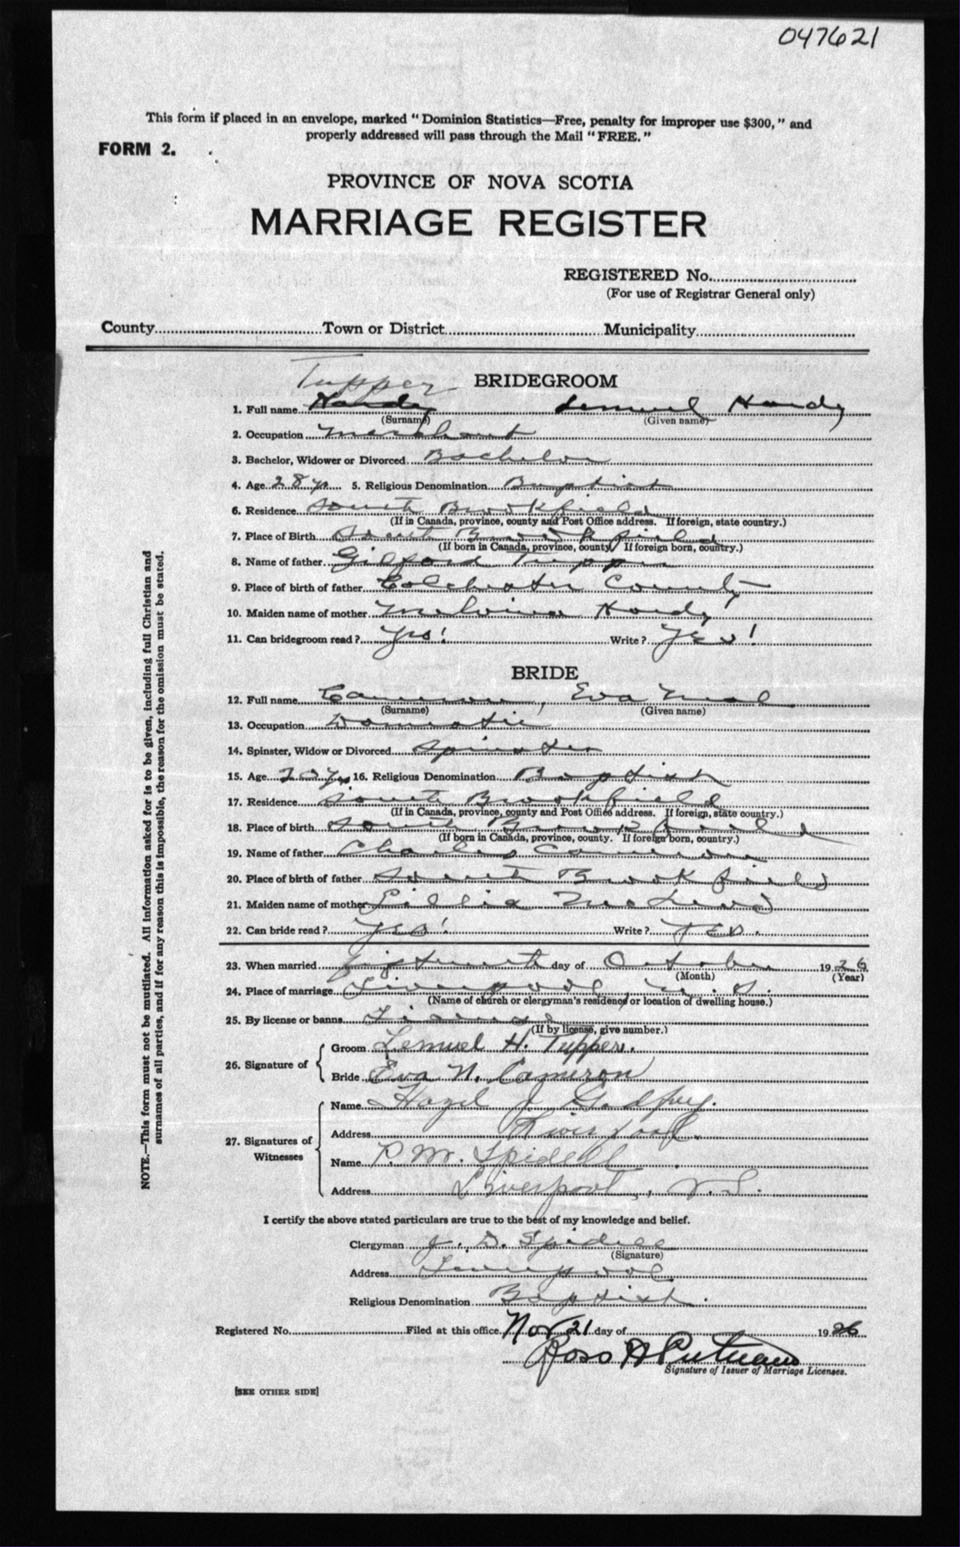 047621
This form if placed in an envelope, marked "Dominion Statistics—Free, penalty for improper use $300," and
properly addressed will pass through the Mail "FREE."
FORM 2.
PROVINCE OF NOVA SCOTIA
MARRIAGE REGISTER
REGISTERED No.
(For use of Registrar General only)
County Town or District Municipality
Tupper BRIDEGROOM
1. Full name Hardy Lemuel Hardy
(Surname) (Given name)
2. Occupation merchant
3. Bachelor, Widower or Divorced Bachelor
4. Age 28 yr 5. Religious Denomination Baptist
6. Residence South Brookfield
(If in Canada, province, county and Post Office address. If foreign, state country.)
7. Place of Birth South Brookfield
(If born in Canada, province, county. If foreign born, country.)
8. Name of father Gilford Tupper
9. Place of birth of father Colchester County
10. Maiden name of mother Melvina Hardy
11. Can bridegroom read? Yes! Write? Yes!
BRIDE
12. Full name Cameron, Eva
(Surname) (Given name)
13. Occupation Domestic
14. Spinster, Widow or Divorced Spinster
15. Age 16. Religious Denomination Baptist
17. Residence South Brookfield
(If in Canada, province, county and Post Office address. If foreign, state country.)
18. Place of birth South Brookfield
(If born in Canada, province, county. If foreign born, country.)
19. Name of father Charles Cameron
20. Place of birth of father South Brookfield
21. Maiden name of mother Lillia McLeod
22. Can bride read? Yes! Write? Yes.
23. When married day of October 1926
(Month) (Year)
24. Place of marriage Liverpool, N.S.
(Name of church or clergyman's residence or location of dwelling house.)
25. By license or banns License
(If by license, give number.)
26. Signature of
Groom Lemuel H. Tupper.
Bride Eva N. Cameron
27. Signatures of Witnesses
Name Hazel J. Godfrey.
Address Liverpool.
Name P.M. Spidell
Address Liverpool, N.S.
I certify the above stated particulars are true to the best of my knowledge and belief.
Clergyman J. D. Spidell
(Signature)
Address Liverpool
Religious Denomination Baptist.
Registered No. Filed at this office Nov 21 day of 1926
Ross A Putnam
Signature of Issuer of Marriage Licenses.
[SEE OTHER SIDE]
NOTE.—This form must not be mutilated. All information asked for is to be given, including full Christian and
surnames of all parties, and if for any reason this is impossible, the reason for the omission must be stated.